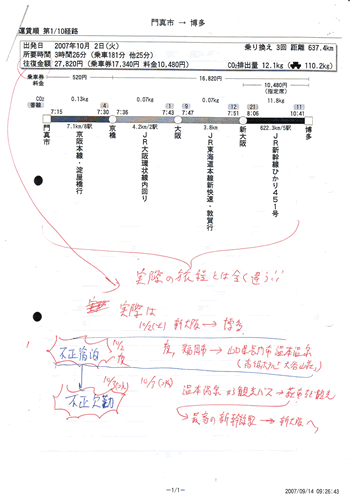 門真市 → 博多
運賃順 第1/10経路
出発日 2007年10月 2日(火) 乗り換え 3回 距離 637.4km
所要時間 3時間26分 (乗車181分 他25分)
往復金額 27,820円 (乗車券17,340円 料金10,480円) CO₂排出量 12.1kg (110.2kg)
乗車券 520円 16,820円
料金 10,480円
(指定席)
CO₂ 0.13kg 0.07kg 0.07kg 11.8kg
番線 4 1 9 21 12
7:15 7:30 7:36 7:43 7:47 7:51 8:06 10:41
門真市 京橋 大阪 新大阪 博多
7.1km/8駅 4.2km/2駅 3.8km 622.3km/5駅
京阪本線・淀屋橋行
JR大阪環状線内回り
JR東海道本線新快速・敦賀行
JR新幹線ひかり451号
実際の旅程とは全く違う!!
実際は
10/2(火) 新大阪→博多
不正宿泊
10/2
夜
夜、福岡市→山口県長門市 湯本温泉
不正欠勤
10/3(水)
湯本温泉
観光バス→萩市を観光
→最寄の新幹線駅→新大阪へ
-1/1-
2007/09/14 09:26:43